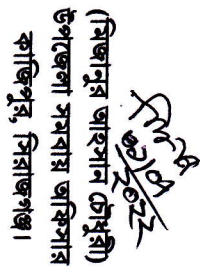 (মিজানুর আহসান চৌধুরী)
উপজেলা সমবায় অফিসার
কাজিপুর, সিরাজগঞ্জ।